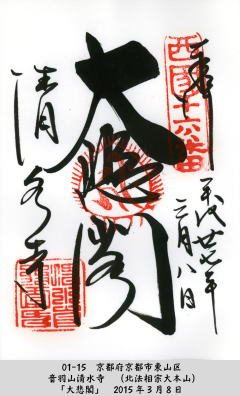 奉拝
西国十六番
平成廿七年
三月八日
大悲閣
清水寺
01-15 京都府京都市東山区
音羽山清水寺 (北法相宗大本山)
「大悲閣」 2015年3月8日